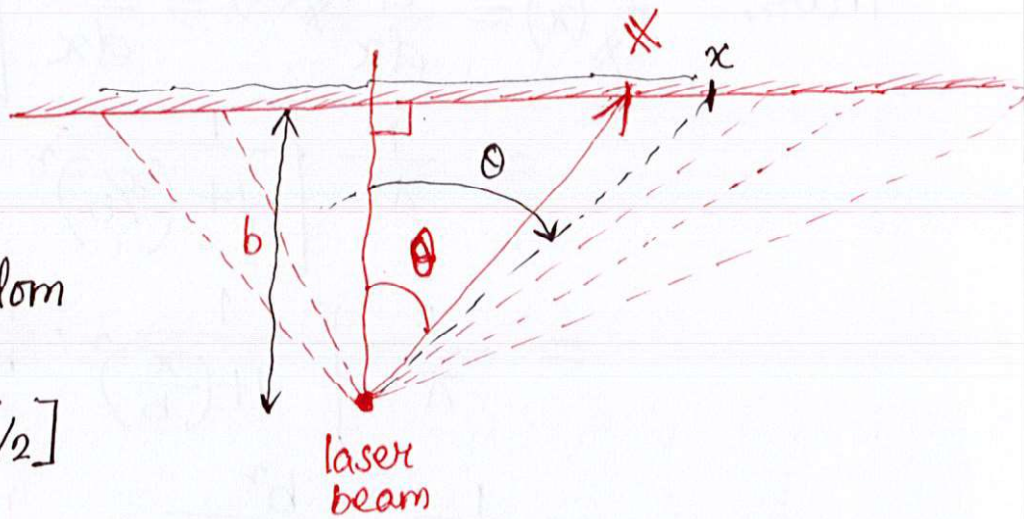 X
x
θ
b
θ
dom
/2]
laser
beam